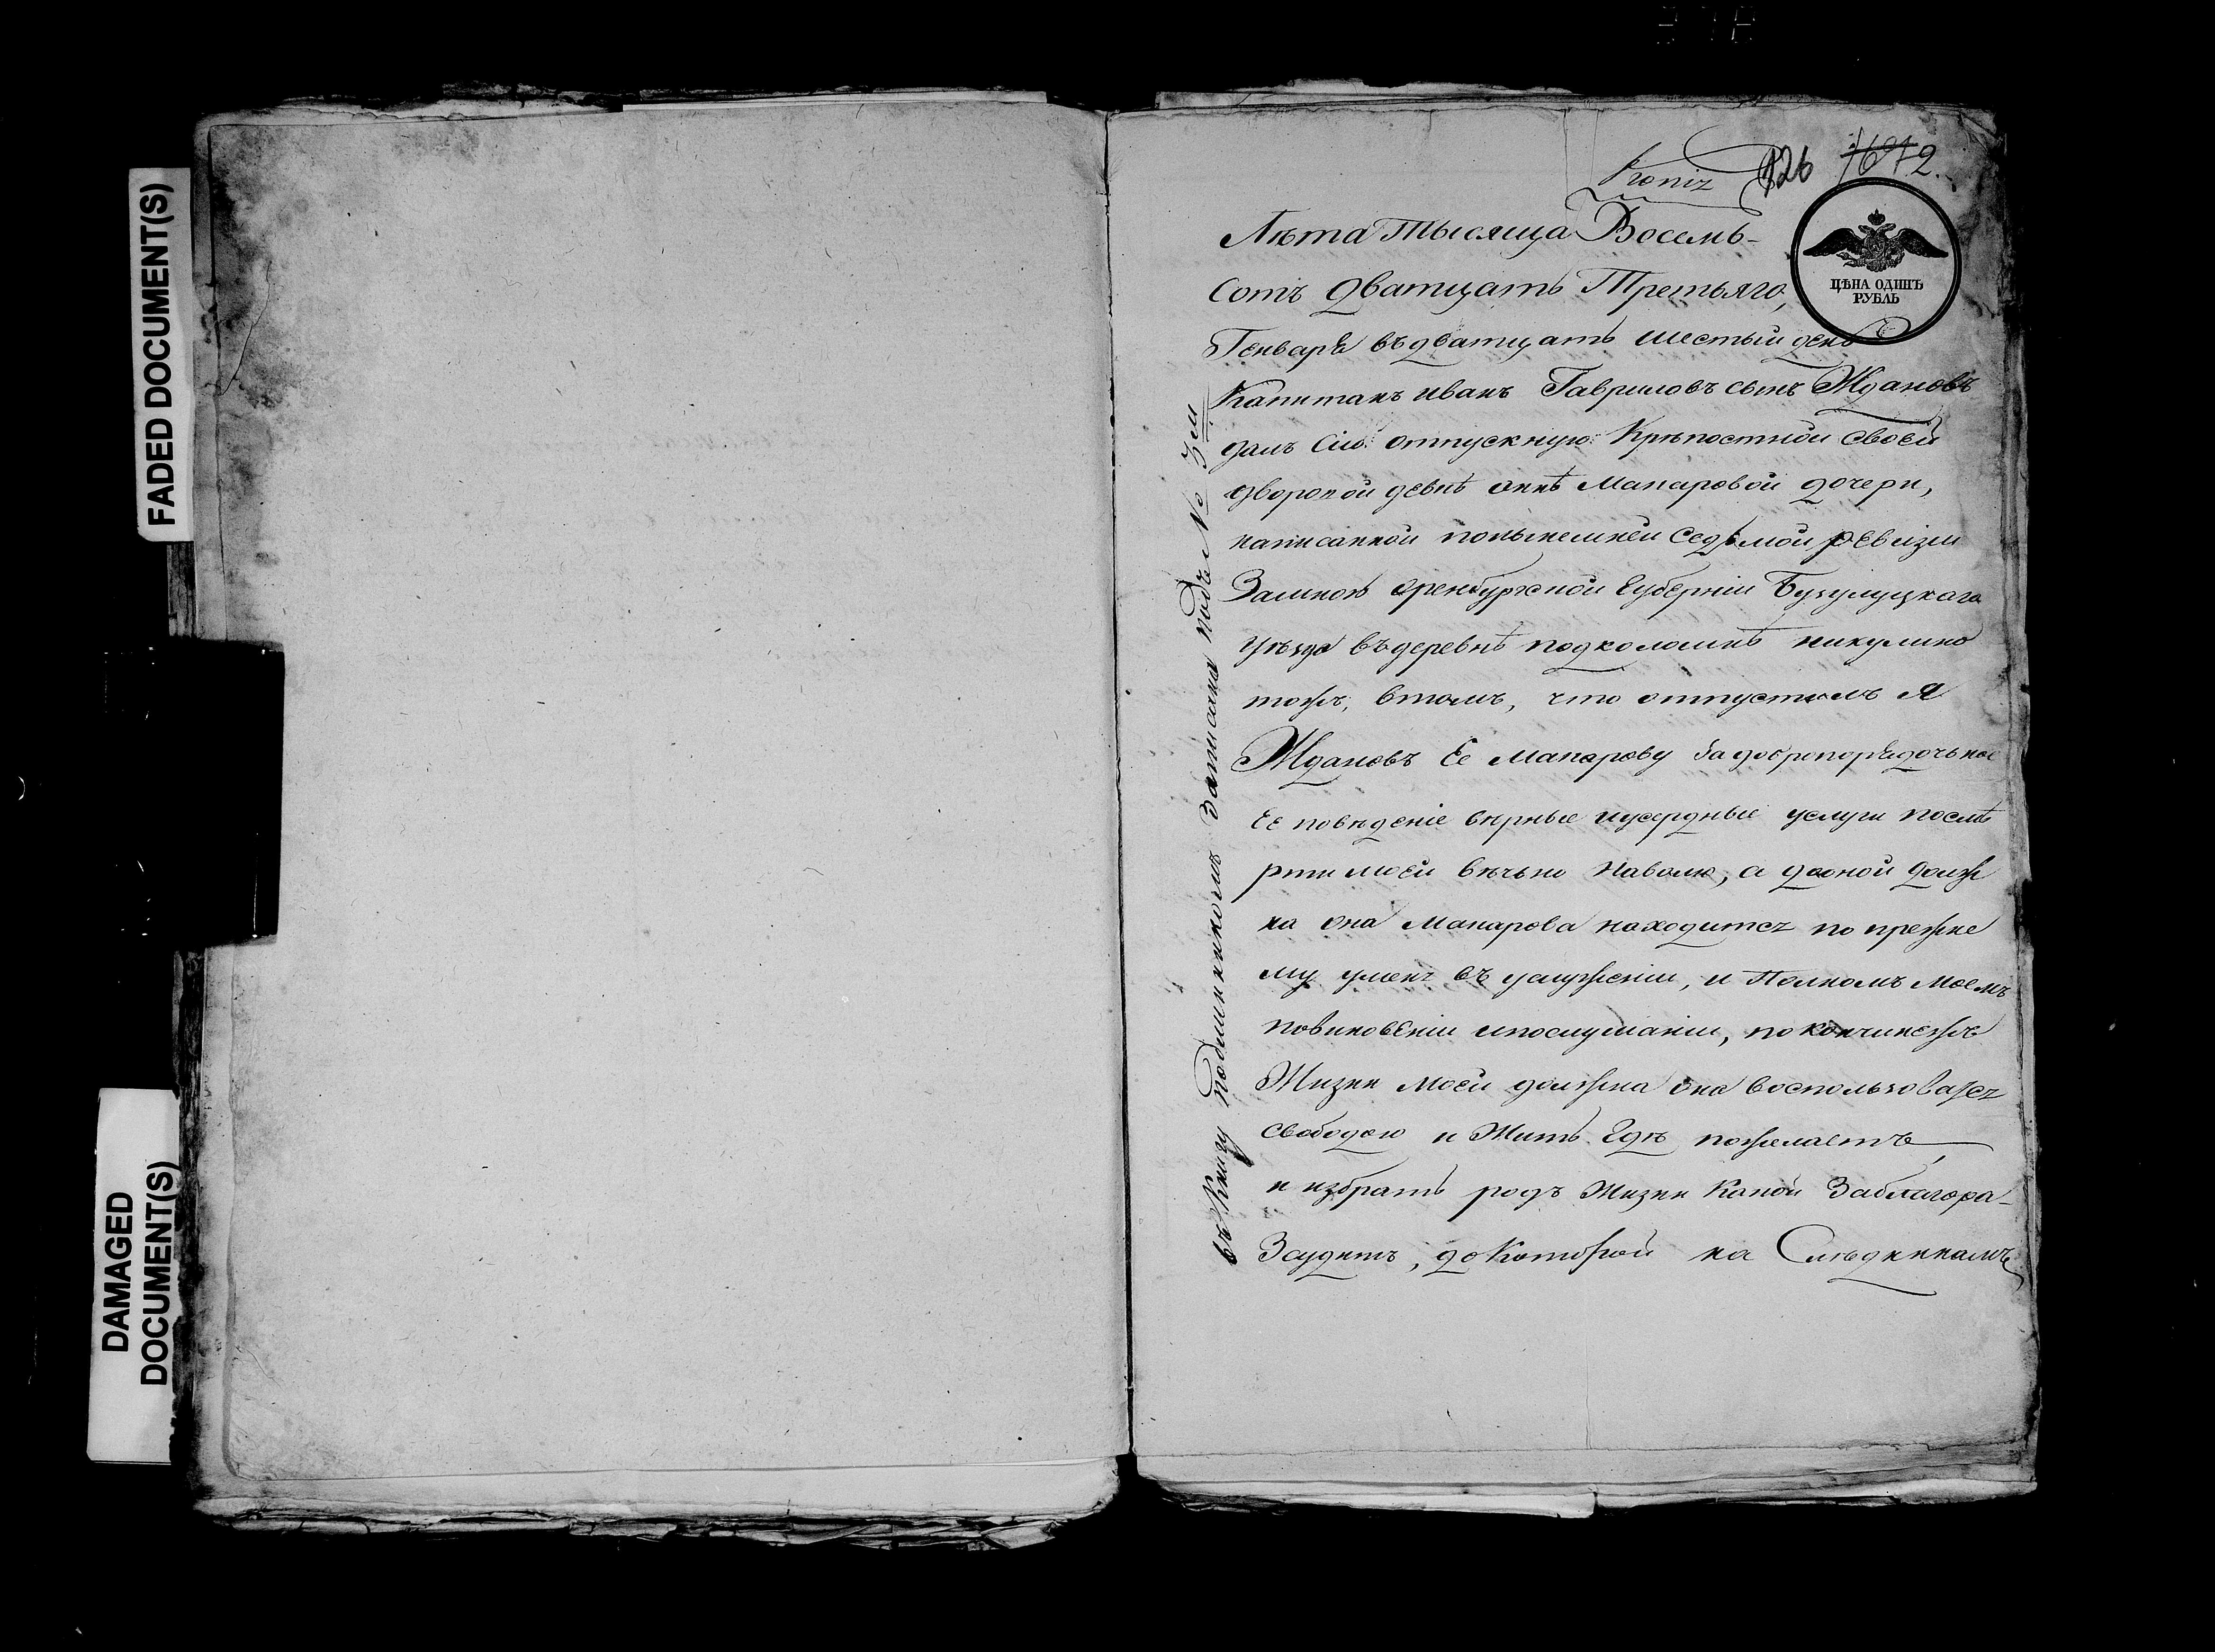 FADED DOCUMENT(S)
DAMAGED
DOCUMENT(S)
Копiя
126
7672.
ЦѢНА ОДИНЪ
РУБЛЬ
Лѣта Тысяща Восемь-
сотъ дватцать Третьяго,
Генваря въ дватцать шестыи день
Капитанъ иванъ Гавриловъ сынъ Ждановъ
далъ сію отпускную Крѣпостной своей
дворовой девкѣ аннѣ Макаровой дочери,
написанной понынешней седьмой ревизіи
Замною оренбургской Губерніи Бузулуцкаго
уѣзда въ деревнѣ подколошнѣ никулино
тожъ, втомъ, что отпустилъ я
Ждановъ Ее Макарову За добропорядочьное
Ее повѣденіе вѣрные иусердные услуги послѣ
рти моей вѣчьно наволю, а доной долж
на она Макарова находится по прежне
му уменя въ услуженіи, и Полномъ моемъ
повиновеніи ипослушаніи, по кончинежъ
Жизни моей должна она воспользоватся
свободою и Жить гдѣ пожелаетъ,
и избрать родъ Жизни Какой Заблагора-
Зсудитъ, до Которой на Слѣдникамъ
въ Книгу подлинникомъ Записана подъ № 3м